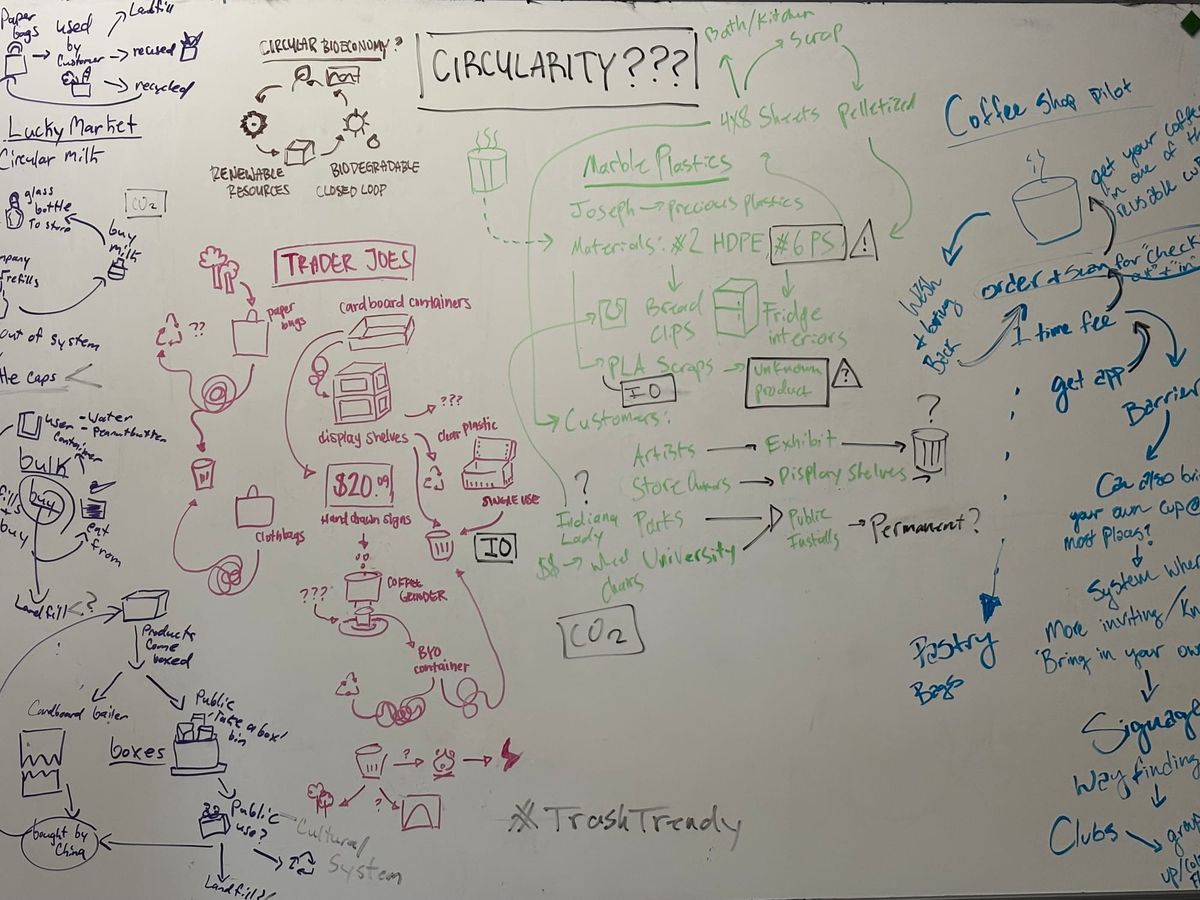 Paper
bags
used
by
Customer
Landfill
reused
recycled
Lucky Market
Circular milk
glass
bottle
To store
CO2
buy
milk
refills
out of system
caps <
use
container
- Water
- Peanutbutter
bulk
buy
buy
eat
from
Landfill <?
Products
Come
boxed
Cardboard bailer
Public
take a box
bin
boxes
Public
use?
bought by
China
Landfill?
Cultural
System
CIRCULAR BIOECONOMY?
RENEWABLE
RESOURCES
BIODEGRADABLE
CLOSED LOOP
CIRCULARITY???
TRADER JOES
paper
bags
??
cloth bags
cardboard containers
display shelves
???
clear plastic
SINGLE USE
$20.09
Hand drawn signs
IO
COFFEE
GRINDER
???
BYO
container
?
?
#TrashTrendy
Bath/Kitchen
Scrap
4x8 Sheets
Pelletized
Marble Plastics
Joseph → precious plastics
Materials: #2 HDPE, #6 PS !
Bread
clips
Fridge
interiors
PLA Scraps → Unknown
product ?
IO
Customers:
Artists → Exhibit → ?
Store Owners → Display Shelves →
?
Indiana
Lady
Parks
University
Public
Installs → Permanent?
$$ → wheel
chairs
CO2
Coffee Shop pilot
get your coffee
in one of
reusable
order + Scan for "Check
out" + "in"
Wash
+ bring
Back
1 time fee
get app
Barrier
Can also
your own cup @
most places?
System
More inviting/
"Bring in your own
Signage
Way finding
Clubs
Pastry
Bags